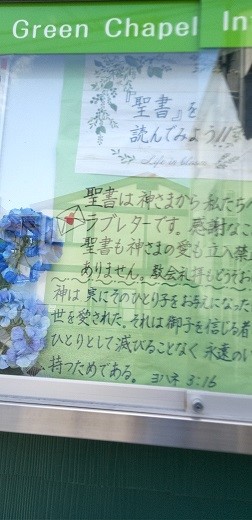 Green Chapel In
『聖書』を
読んでみよう!!
Life is bloom
聖書は神さまから私たちへ
ラブレターです。感謝なこ
聖書も神さまの愛も立入禁止
ありません。教会礼拝もどうぞお
神は実にそのひとり子をお与えになった
世を愛された。それは御子を信じる者
ひとりとして滅びることなく永遠のい
持つためである。ヨハネ 3:16